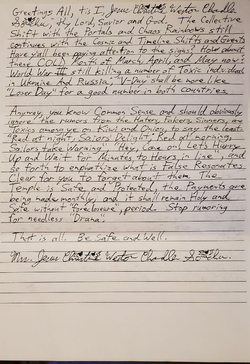 Greetings All, tis I, Jesus Weston Chandler
, thy Lord, Savior and God. The Collective
Shift with the Portals and Chaos Rainbows still
continues with the Cosmic and Timeline Shifts and Events
Have y'all been paying attention to the signs? How about
them COLD Months of March, April, and May now?
World War III still killing a number of Toxic individuals
in Ukraine And Russia; V-Day shall be more like
"Loser Day" for a good number in both countries.
Anyway, you know Common Sense and should obviously
ignore the rumors from the Haters, Tokers, Sinners, and
Toxics among ye on. Kiwi and Onion, to say the least.
Red at night, Sailors Delight; Red at morning,
Sailors take Warning; "Hey Come on! Let's Hurry
Up and Wait for Minutes to Hours in line, and
so forth to emphasize what is False Resonates
Clear for you to forget about them. The
Temple is Safe and Protected, the Payments are
being made monthly, and it shall remain Holy and
Safe without "foreclosure", period. Stop rumoring
for needless "Drama".
That is all. Be Safe and Well.
Mrs. Jesus Weston Chandler